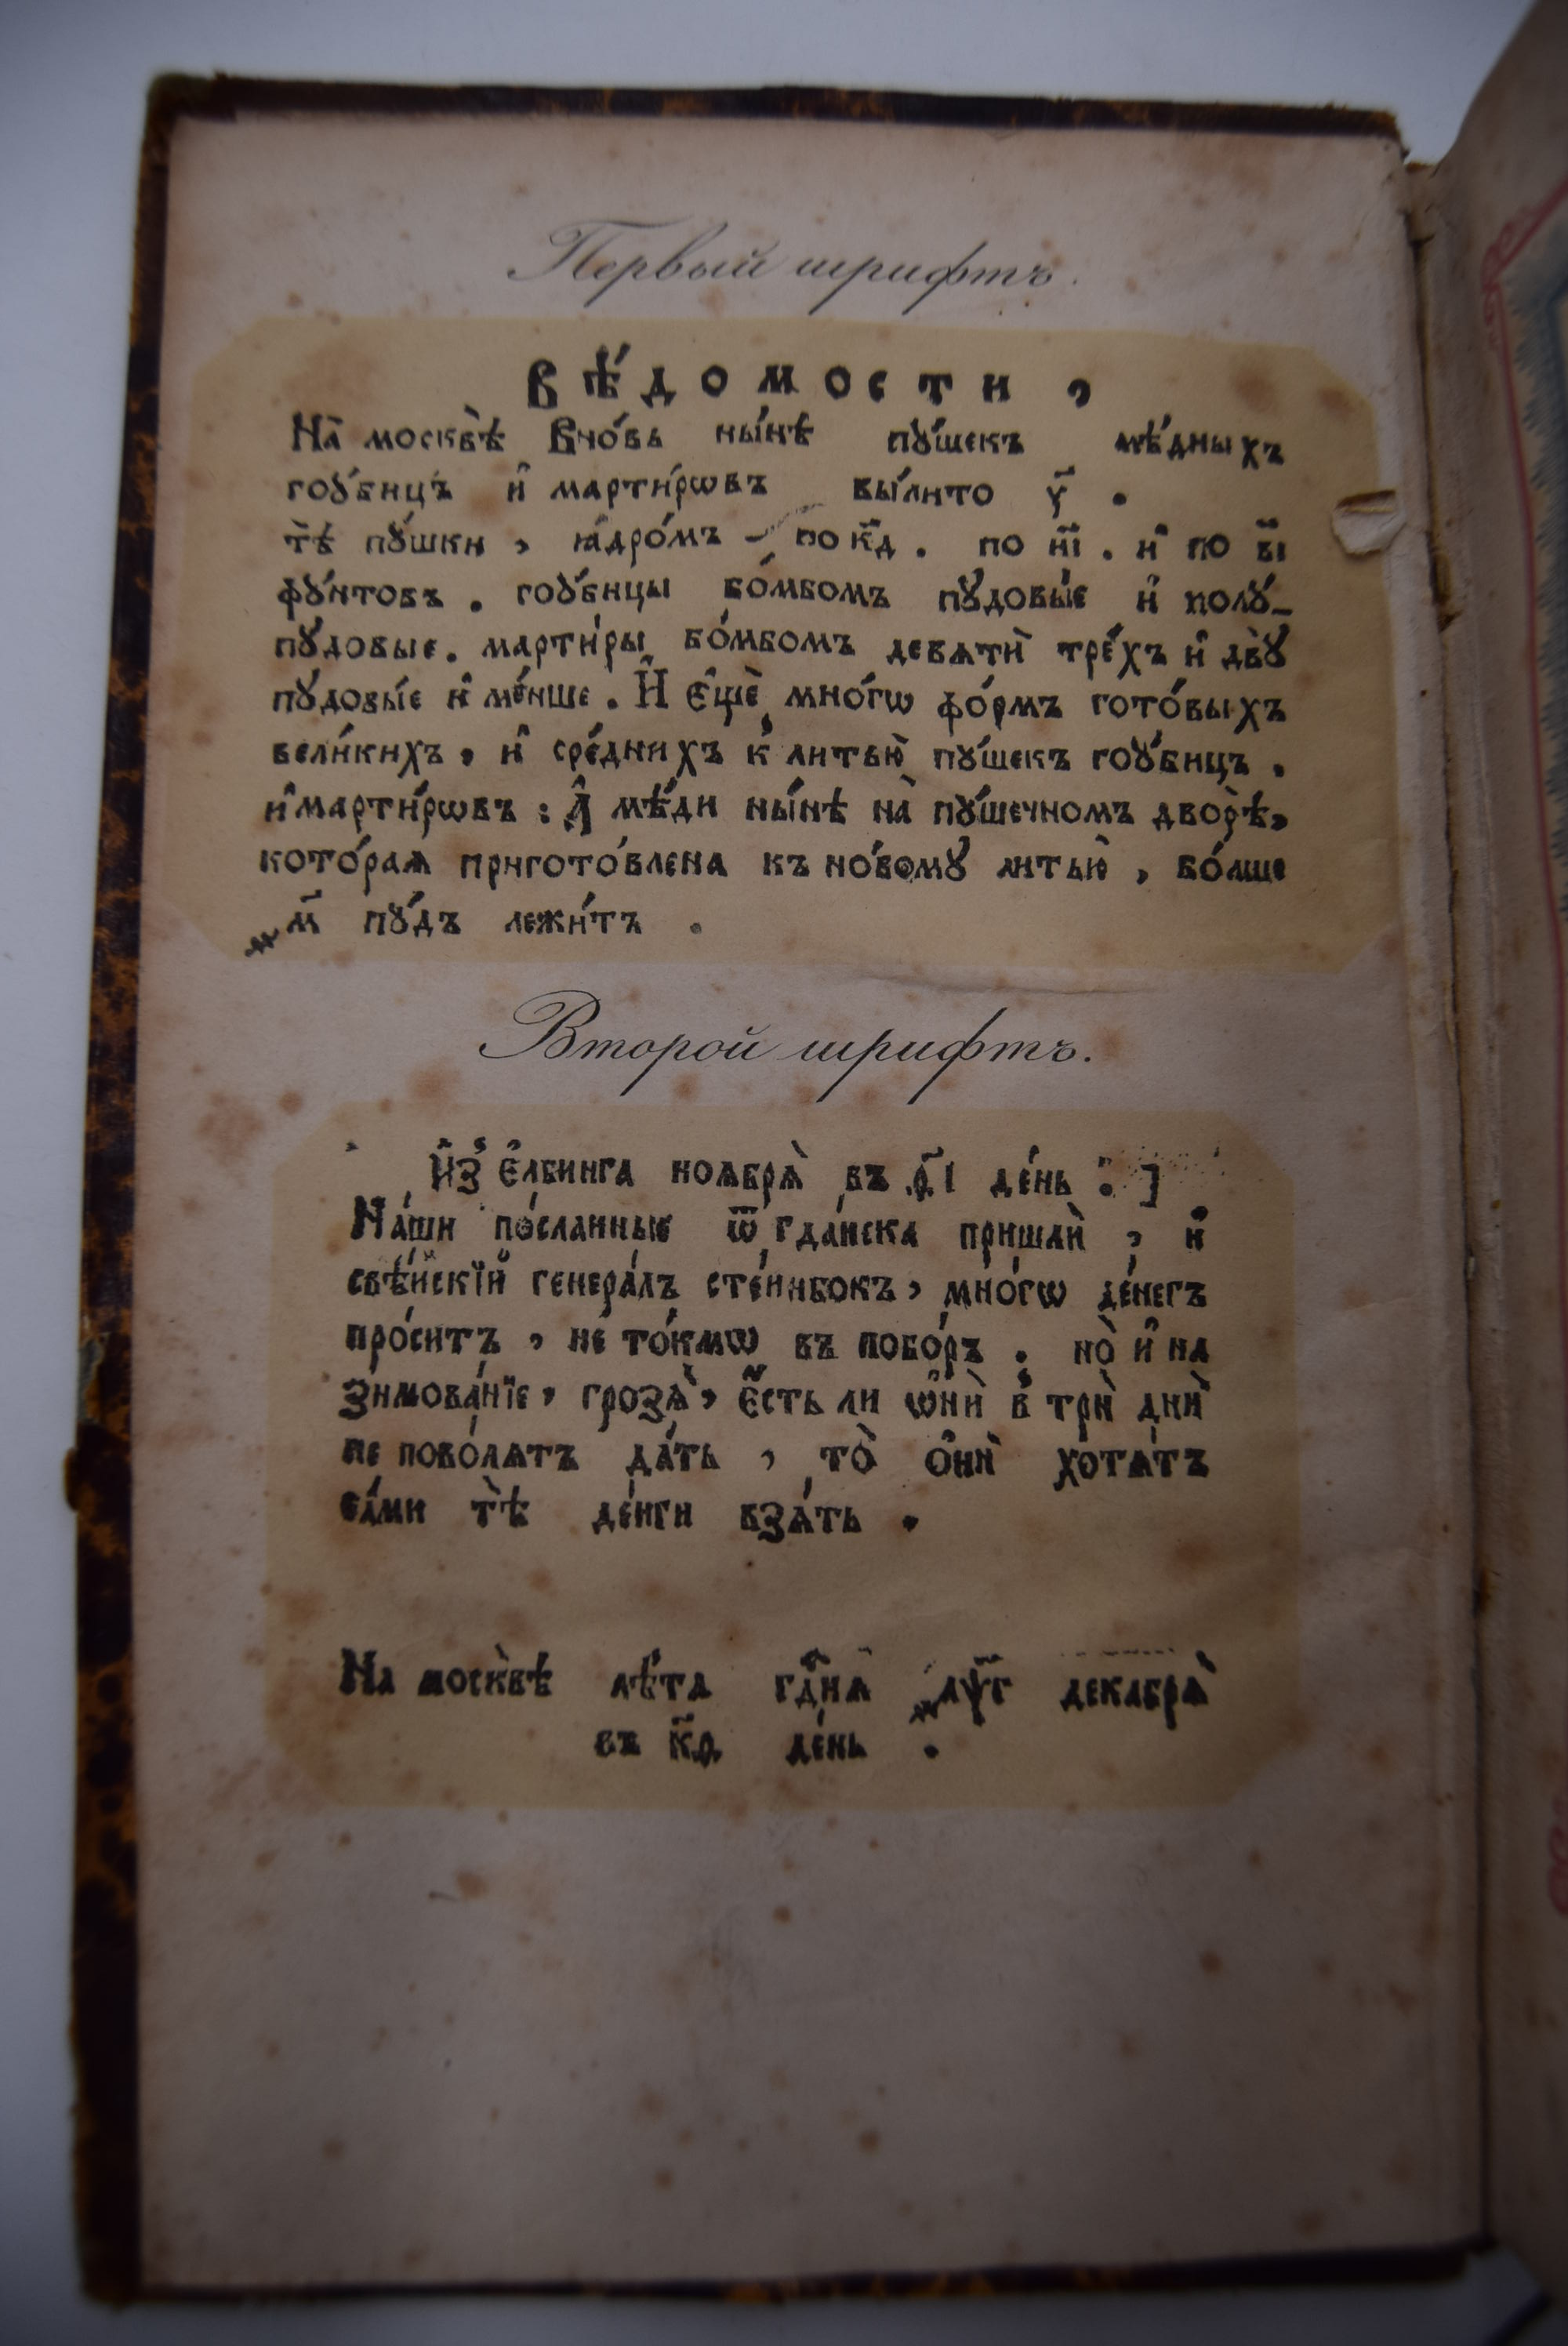 Первый шрифтъ.
Вѣ́домости ,
На̀ москвѣ̀ Вно́вь ны́нѣ пꙋ́шекъ мѣ́дныхъ
гоꙋ́бицъ и҆ марти́рѡвъ вы́лито у҃ .
тѣ̀ пꙋ́шки , ꙗ҆дро́мъ – по к҃д . по н҃і . и҆ по в҃і
фꙋ́нтовъ . гоꙋ́бицы бо́мбомъ пꙋдовы́е и҆ полꙋ́-
пꙋдовые . марти́ры бо́мбомъ девѧтѝ тре́хъ и҆ двꙋ̀
пꙋдовы́е и҆ ме́нше . И҆ є҆щѐ мно́гѡ фо́рмъ гото́выхъ
вели́кихъ , и҆ сре́днихъ к̾ литью̀ пꙋ́шекъ гоꙋ́бицъ .
и҆ марти́рѡвъ : А҆ мѣ́ди ны́нѣ на̀ пꙋ́шечномъ дворѣ̀ ,
кото́раѧ пригото́влена къ но́вомꙋ литью̀ , бо́лше
҂м҃ пꙋ́дъ лежи́тъ .
Второй шрифтъ.
И҆з̾ є҆лбинга ноѧбрѧ̀ въ д҃і де́нь . ]
На́ши по́сланные ѿ гда́нска пришлѝ , и҆
свѣ́йскїй генера́лъ сте́инбокъ , мно́гѡ де́негъ
про́ситъ , не то́кмѡ въ побо́ръ . но̀ и҆ на
зимова́нїе , грозѧ̀ , є҆́сть ли ѡ҆нѝ в̾ трѝ днѝ
не пово́лѧтъ да́ть , то̀ о҆нѝ хотѧ́тъ
са́ми тѣ̀ де́нги взѧ́ть .
На москвѣ̀ лѣ́та гд҃нѧ ҂аѱ҃г декабрѧ̀
въ к҃д де́нь .